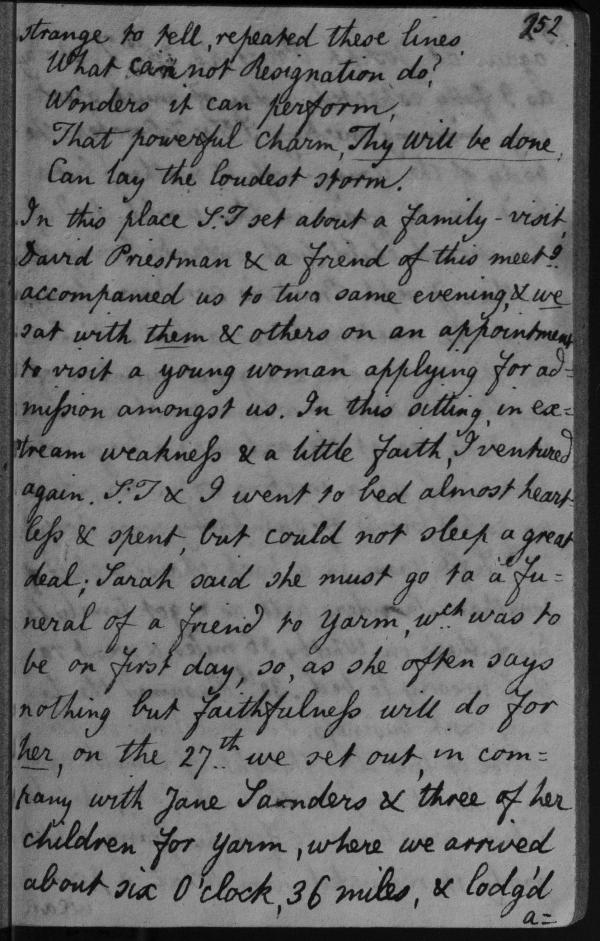 252
strange to tell, repeated these lines
What cannot Resignation do?
Wonders it can perform,
That powerful charm, Thy Will be done,
Can lay the loudest storm.
In this place S:T set about a family-visit,
David Priestman & a friend of this meetg
accompanied us to two same evening, & we
sat with them & others on an appointment
to visit a young woman applying for ad=
mission amongst us. In this sitting, in ex=
tream weakness & a little faith, I ventured
again. S:T & I went to bed almost heart
less & spent, but could not sleep a great
deal; Sarah said she must go to a fu=
neral of a friend to Yarm, wch was to
be on first day, so, as she often says
nothing but faithfulness will do for
her, on the 27th we set out, in com=
pany with Jane Sanders & three of her
children for Yarm, where we arrived
about six O'clock, 36 miles, & lodg'd
a=